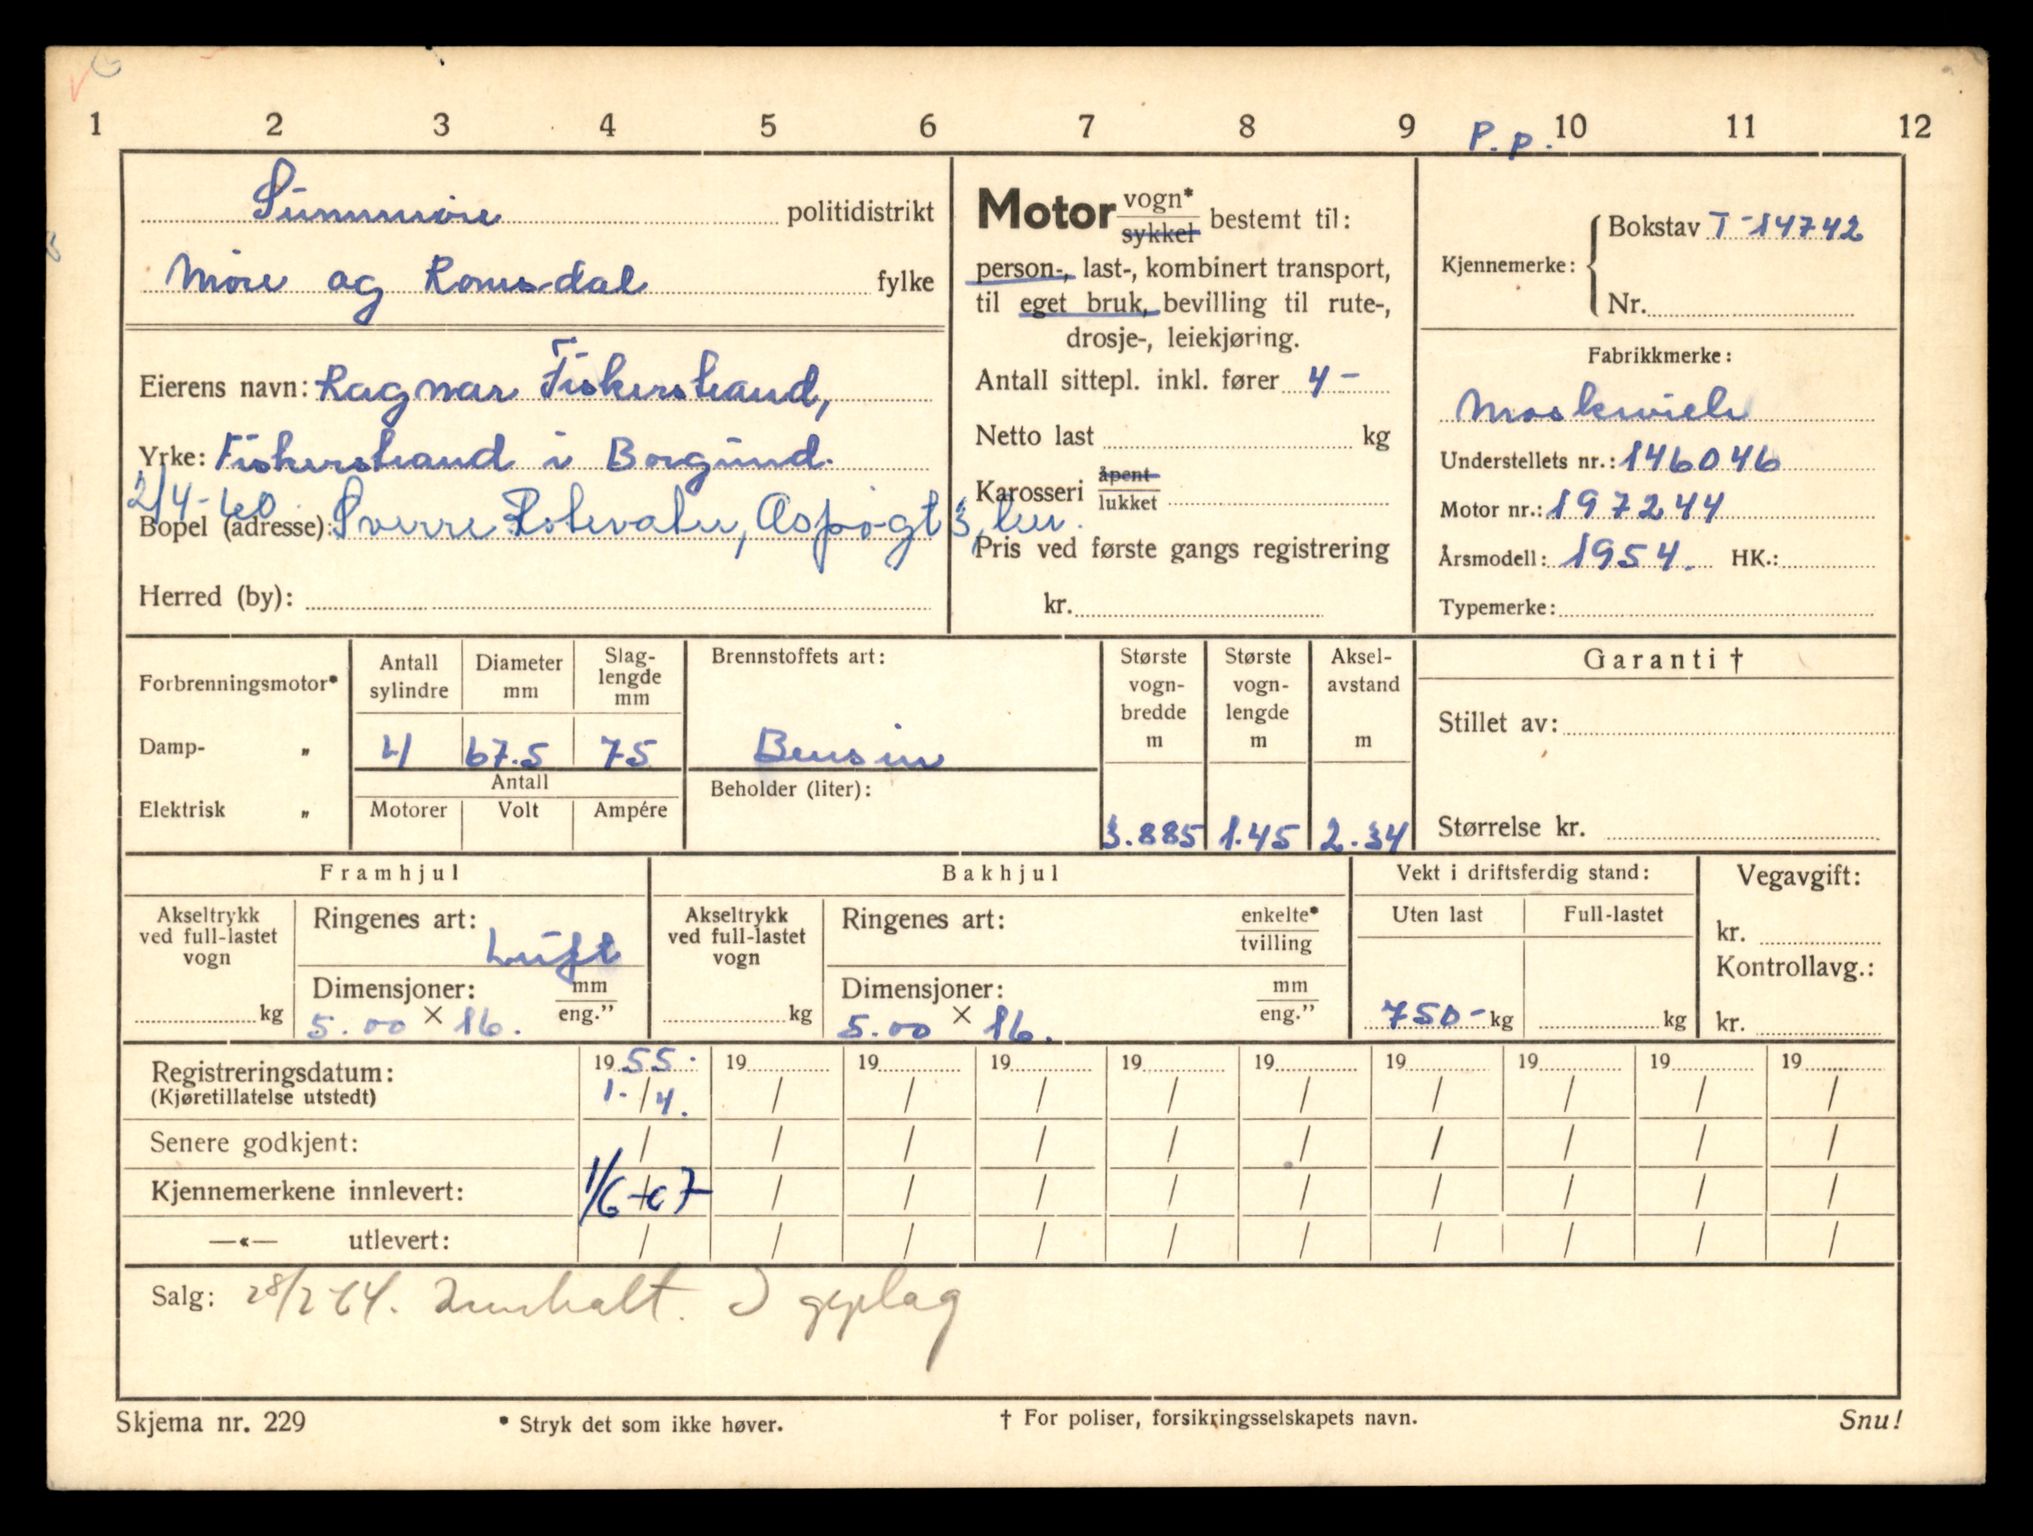 1 2 3 4 5 6 7 8 9 10 11 12
P.p.
Sunnmøre politidistrikt
Møre og Romsdal fylke
Eierens navn: Ragnar Fiskerstrand,
Yrke: Fiskerstrand i Borgund.
2/4-60.
Bopel (adresse): Sverre Rotevatn, Aspøgt 3,
Herred (by):
Motor vogn* sykkel bestemt til:
person-, last-, kombinert transport,
til eget bruk, bevilling til rute-,
drosje-, leiekjøring.
Antall sittepl. inkl. fører 4 -
Netto last kg
Karosseri åpent lukket
Pris ved første gangs registrering
kr.
Kjennemerke: Bokstav T-14742
Nr.
Fabrikkmerke:
Moskwich
Understellets nr.: 146046
Motor nr.: 197244
Årsmodell: 1954. HK.:
Typemerke:
Forbrenningsmotor*
Damp- „
Elektrisk „
Antall sylindre
Diameter mm
Slag-lengde mm
4 67.5 75
Antall
Motorer Volt Ampére
Brennstoffets art:
Bensin
Beholder (liter):
Største vogn-bredde m
Største vogn-lengde m
Aksel-avstand m
3.885 1.45 2.34
Garanti †
Stillet av:
Størrelse kr.
Framhjul
Akseltrykk ved full-lastet vogn
kg
Ringenes art:
Luft
Dimensjoner: mm eng.”
5.00 × 16.
Bakhjul
Akseltrykk ved full-lastet vogn
kg
Ringenes art: enkelte* tvilling
Dimensjoner: mm eng.”
5.00 × 16.
Vekt i driftsferdig stand:
Uten last Full-lastet
750- kg kg
Vegavgift:
kr.
Kontrollavg.:
kr.
Registreringsdatum: 1955. 19 19 19 19 19 19 19 19 19
(Kjøretillatelse utstedt) 1./4. / / / / / / / / /
Senere godkjent: / / / / / / / / / /
Kjennemerkene innlevert: 1/6-67 / / / / / / / / /
—«— utlevert: / / / / / / / / / /
Salg: 28/2-64. Innkalt. I
Skjema nr. 229
* Stryk det som ikke høver.
† For poliser, forsikringsselskapets navn.
Snu!